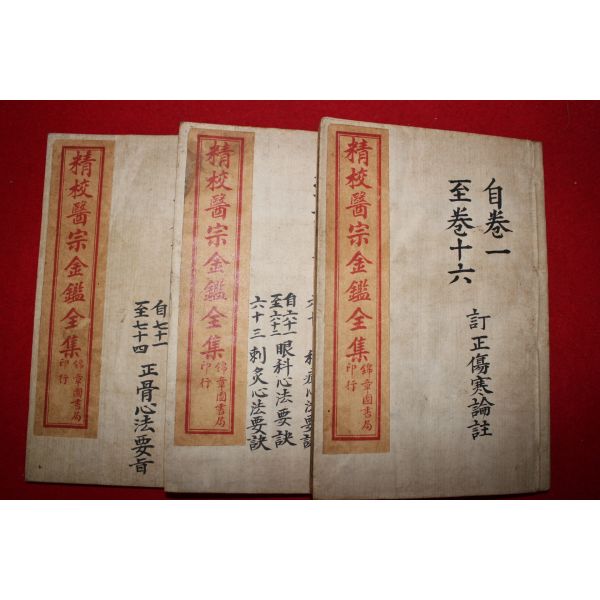 自卷一
至卷十六
訂正傷寒論註
精校醫宗金鑑全集
錦章圖書局
印行
自六十一
至六十二
眼科心法要訣
六十三
刺灸心法要訣
精校醫宗金鑑全集
錦章圖書局
印行
自七十一
至七十四
正骨心法要旨
精校醫宗金鑑全集
錦章圖書局
印行